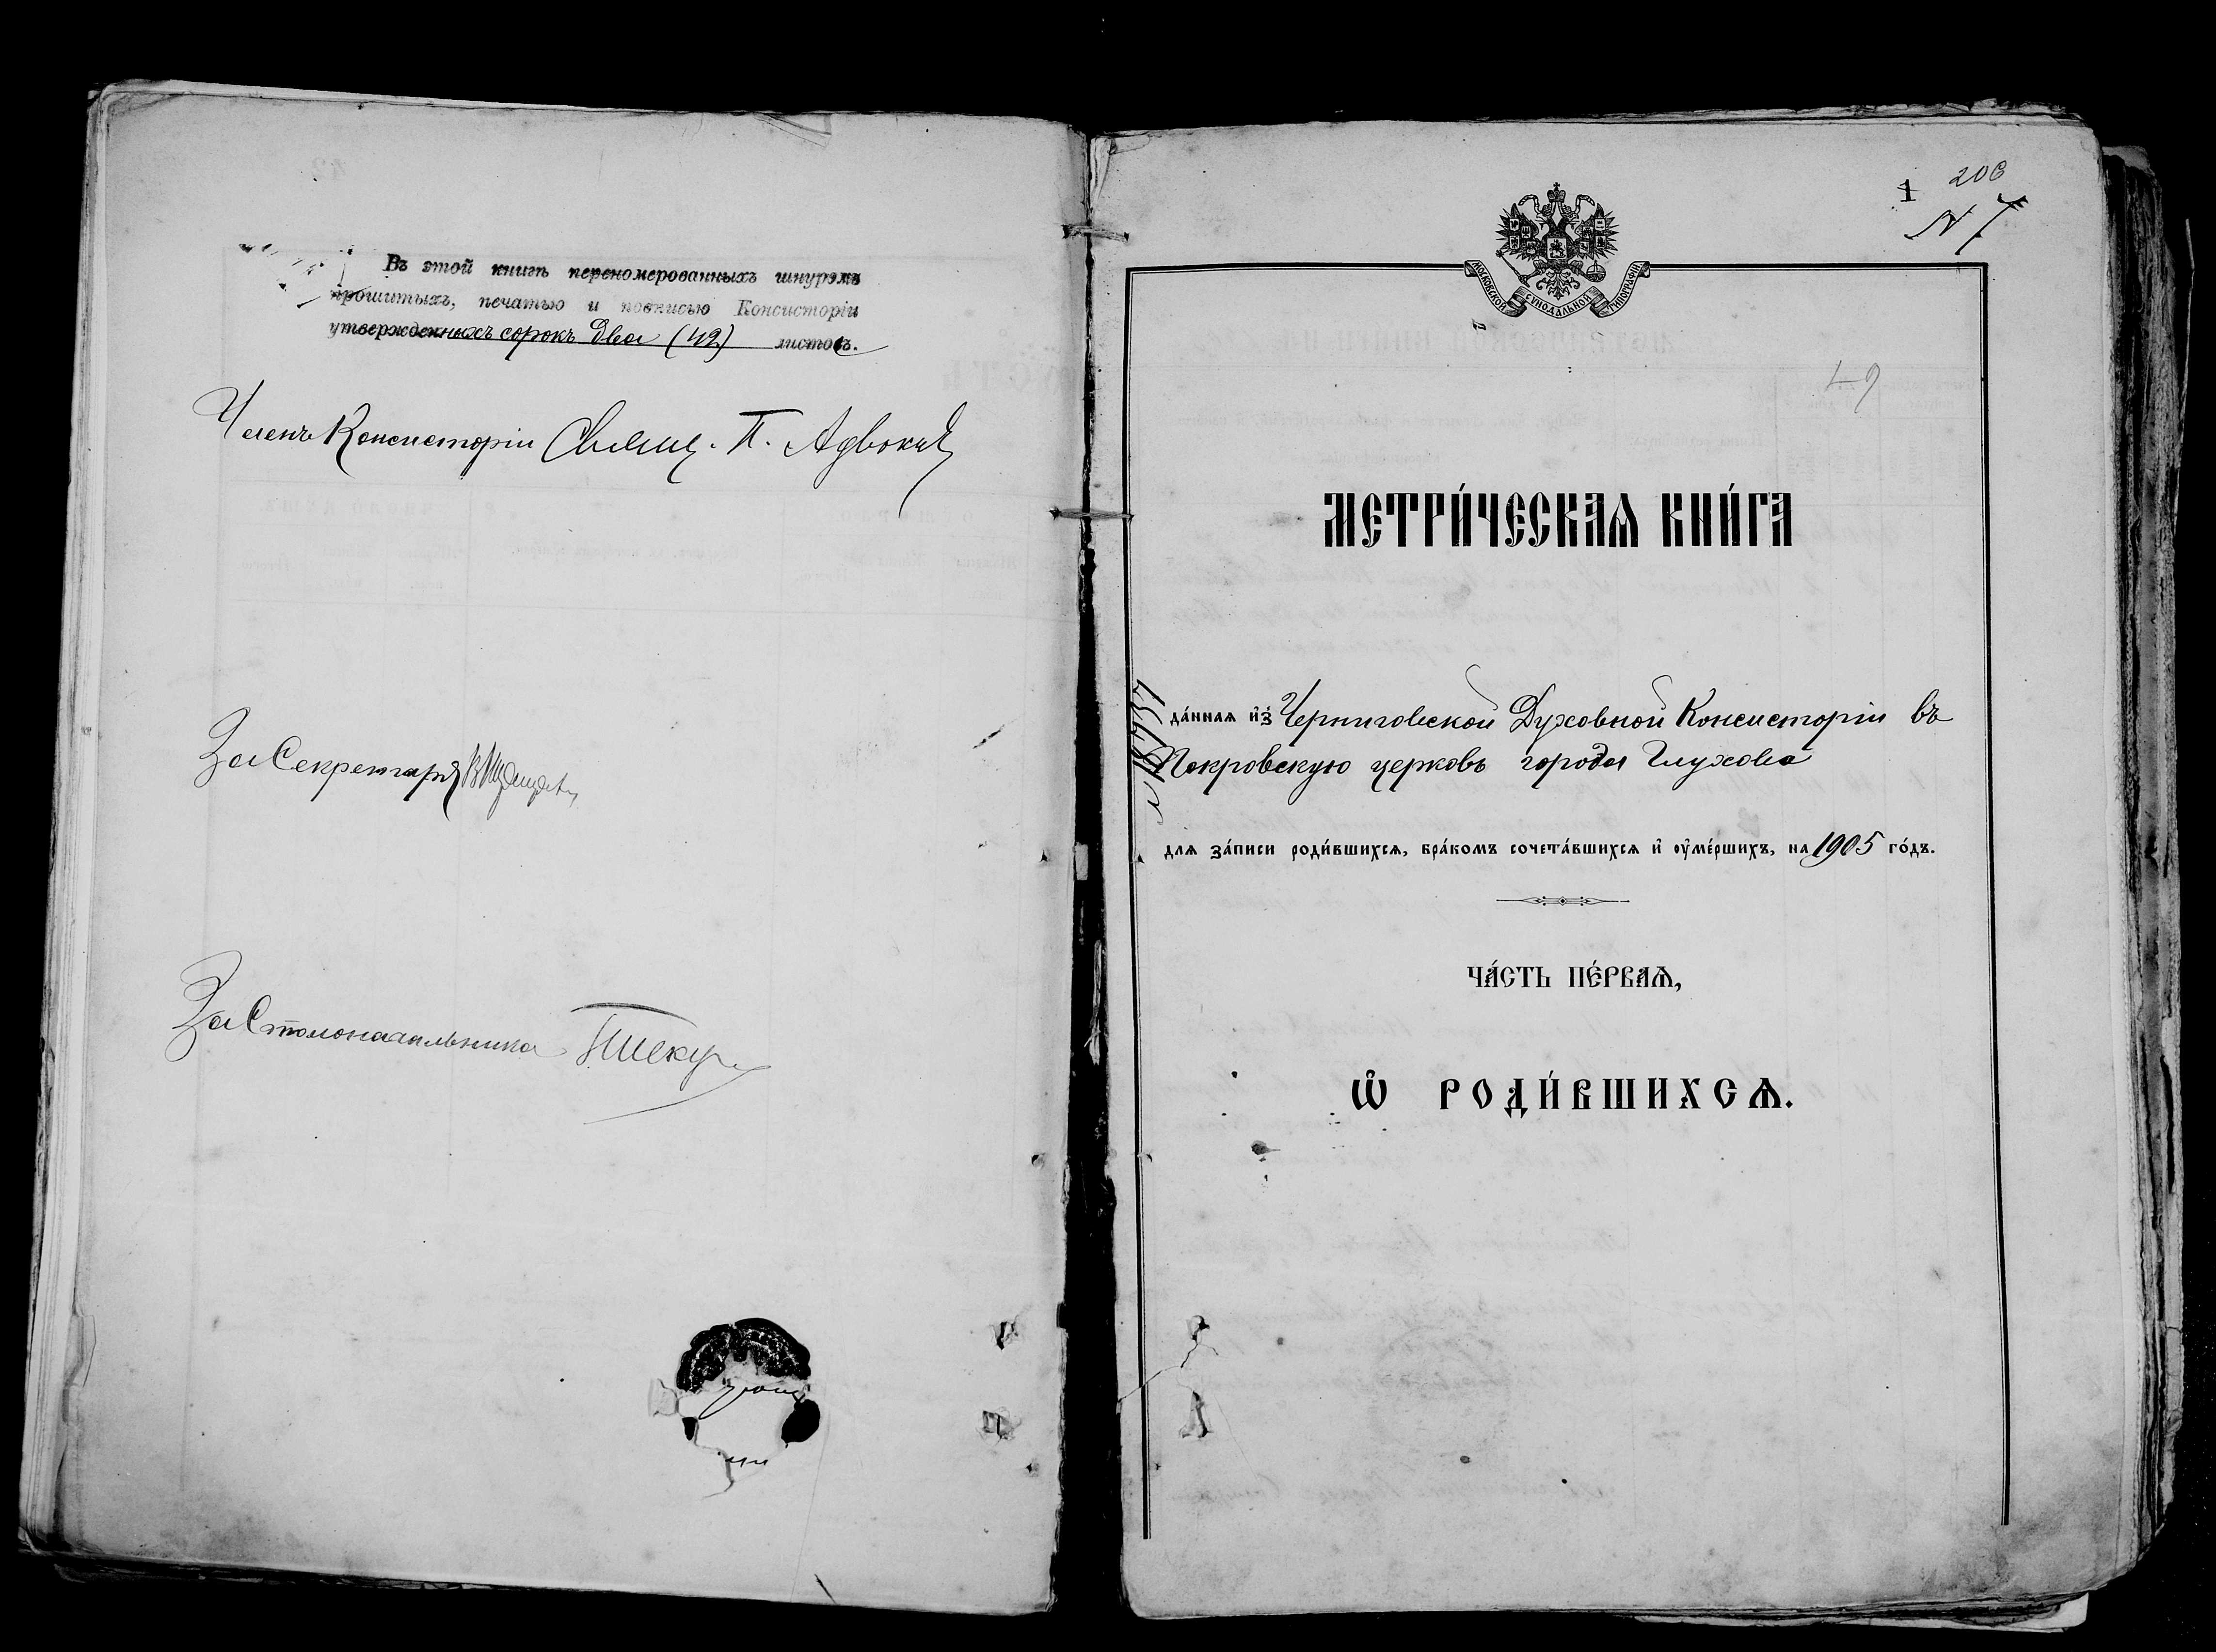 Въ этой книгѣ переномерованныхъ шнуромъ
прошитыхъ, печатью и подписью Консисторіи
утвержденныхъ сорокъ два (42) листовъ.
Членъ Консисторіи Свящ. П. Адвокат
За Секретаря
За Столоначальника
206
1
N 7
МОСКОВСКОЙ СѴНОДАЛЬНОЙ ТИПОГРАФІИ
49
МЕТРИ́ЧЕСКАѦ КНИ́ГА
да́ннаѧ и҆з̾ Черниговской Духовной Консисторіи въ
Покровскую церковь города Глухова
длѧ за́писи роди́вшихсѧ, бра́комъ сочета́вшихсѧ и҆ ᲂу҆ме́ршихъ, на 1905 го́дъ.
ЧА́СТЬ ПЕ́РВАѦ,
Ѽ РОДИ́ВШИХСѦ.